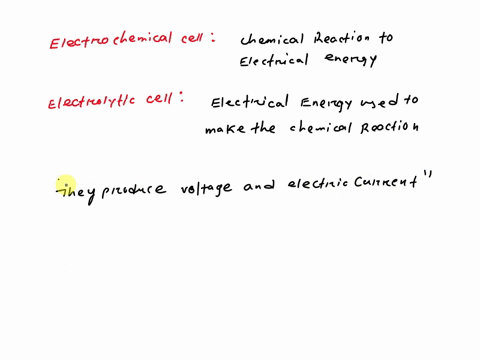 Electrochemical cell : Chemical Reaction to
Electrical energy
Electrolytic cell : Electrical Energy used to
make the chemical Reaction
They produce voltage and electric current"